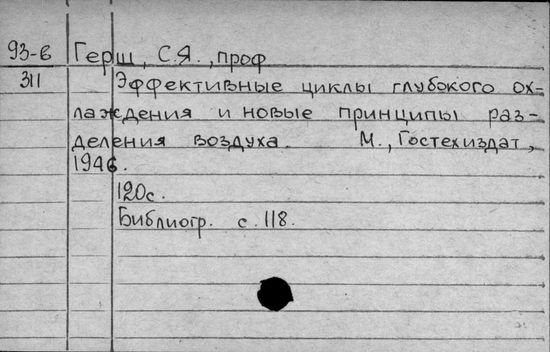 93-в Герш, С.Я., проф
311 Эффективные циклы глубокого ох-
лаждения и новые принципы раз-
деления воздуха. М., Гостехиздат,
1946.
120с.
Библиогр. с. 118.